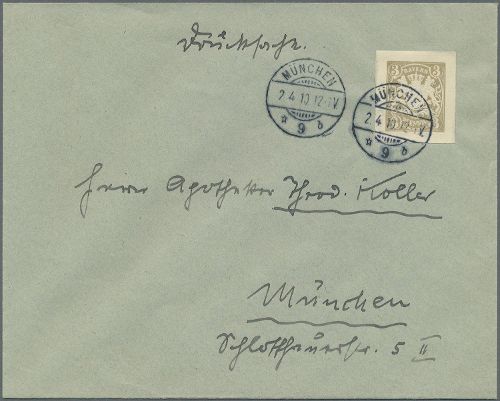 Drucksache.
MÜNCHEN
2.4.10.12-1V.
* 9 b
MÜNCHEN
2.4.10.12-1V.
* 9 b
3 BAYERN 3
3 3
Herrn Apotheker Theod. Koller
München
Schlotthauerstr. 5 II